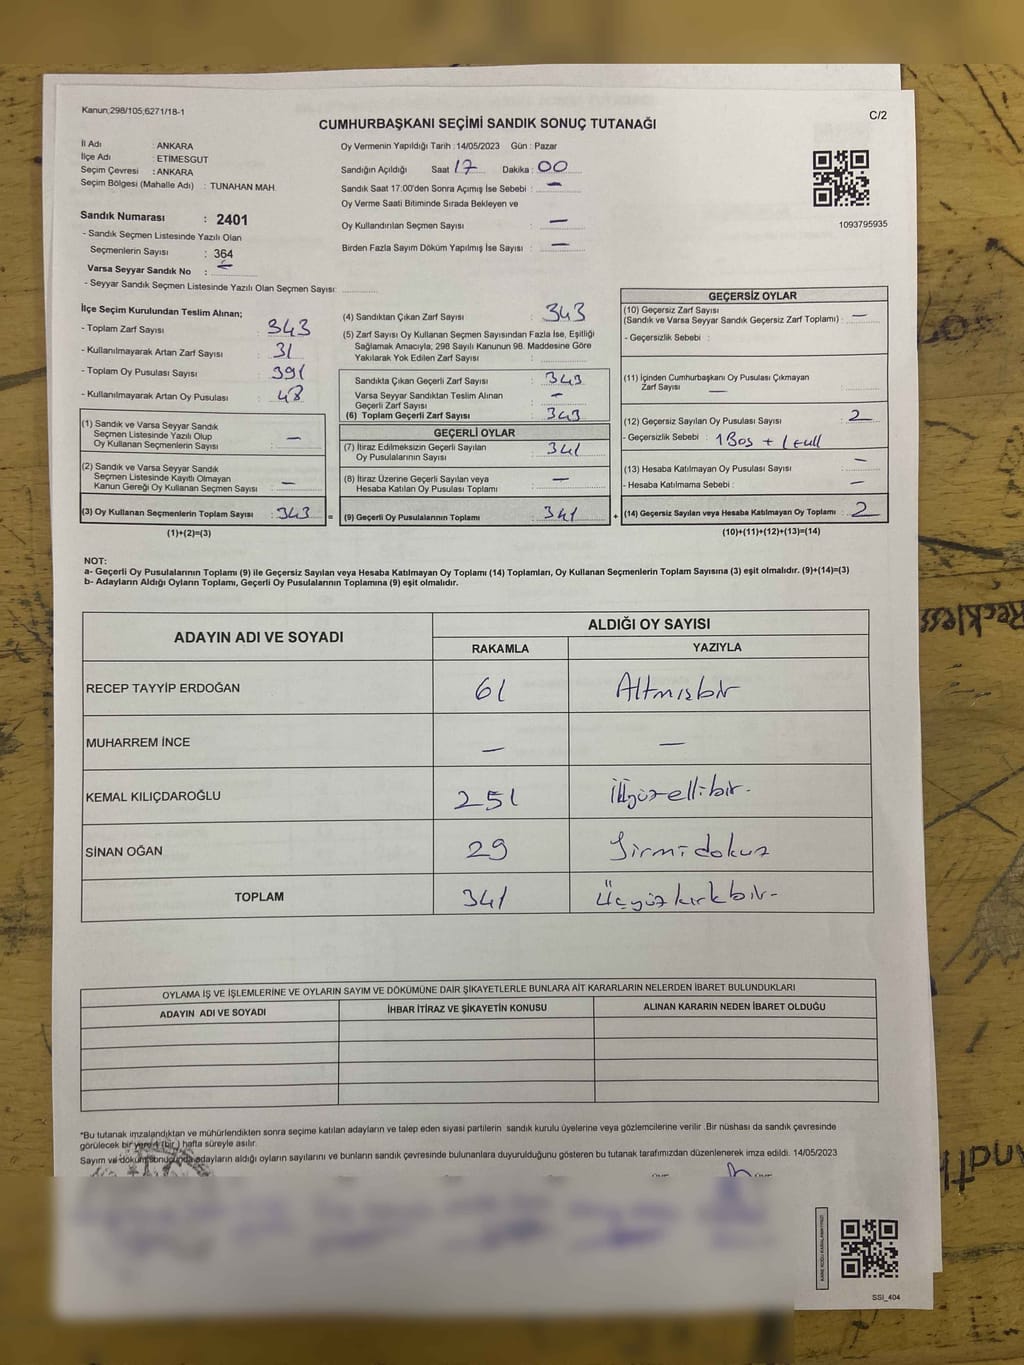 Kanun,298/105;6271/18-1
C/2
CUMHURBAŞKANI SEÇİMİ SANDIK SONUÇ TUTANAĞI
İl Adı : ANKARA
İlçe Adı : ETİMESGUT
Seçim Çevresi : ANKARA
Seçim Bölgesi (Mahalle Adı) : TUNAHAN MAH.
Sandık Numarası : 2401
- Sandık Seçmen Listesinde Yazılı Olan
Seçmenlerin Sayısı : 364
Varsa Seyyar Sandık No : –
- Seyyar Sandık Seçmen Listesinde Yazılı Olan Seçmen Sayısı:
Oy Vermenin Yapıldığı Tarih :14/05/2023 Gün : Pazar
Sandığın Açıldığı Saat 17 Dakika : 00
Sandık Saat 17:00'den Sonra Açımış İse Sebebi : –
Oy Verme Saati Bitiminde Sırada Bekleyen ve
Oy Kullandırılan Seçmen Sayısı : –
Birden Fazla Sayım Döküm Yapılmış İse Sayısı : –
1093795935
İlçe Seçim Kurulundan Teslim Alınan;
- Toplam Zarf Sayısı : 343
- Kullanılmayarak Artan Zarf Sayısı : 31
- Toplam Oy Pusulası Sayısı : 391
- Kullanılmayarak Artan Oy Pusulası : 48
(1) Sandık ve Varsa Seyyar Sandık
Seçmen Listesinde Yazılı Olup
Oy Kullanan Seçmenlerin Sayısı : –
(2) Sandık ve Varsa Seyyar Sandık
Seçmen Listesinde Kayıtlı Olmayan
Kanun Gereği Oy Kullanan Seçmen Sayısı : –
(3) Oy Kullanan Seçmenlerin Toplam Sayısı : 343 =
(1)+(2)=(3)
(4) Sandıktan Çıkan Zarf Sayısı : 343
(5) Zarf Sayısı Oy Kullanan Seçmen Sayısından Fazla İse, Eşitliği
Sağlamak Amacıyla; 298 Sayılı Kanunun 98. Maddesine Göre
Yakılarak Yok Edilen Zarf Sayısı :
Sandıkta Çıkan Geçerli Zarf Sayısı : 343
Varsa Seyyar Sandıktan Teslim Alınan
Geçerli Zarf Sayısı : –
(6) Toplam Geçerli Zarf Sayısı : 343
GEÇERLİ OYLAR
(7) İtiraz Edilmeksizin Geçerli Sayılan
Oy Pusulalarının Sayısı : 341
(8) İtiraz Üzerine Geçerli Sayılan veya
Hesaba Katılan Oy Pusulası Toplamı : –
(9) Geçerli Oy Pusulalarının Toplamı : 341 +
GEÇERSİZ OYLAR
(10) Geçersiz Zarf Sayısı
(Sandık ve Varsa Seyyar Sandık Geçersiz Zarf Toplamı) : –
- Geçersizlik Sebebi :
(11) İçinden Cumhurbaşkanı Oy Pusulası Çıkmayan
Zarf Sayısı : –
(12) Geçersiz Sayılan Oy Pusulası Sayısı : 2
- Geçersizlik Sebebi : 1 Boş + 1 full
(13) Hesaba Katılmayan Oy Pusulası Sayısı : –
- Hesaba Katılmama Sebebi : –
(14) Geçersiz Sayılan veya Hesaba Katılmayan Oy Toplamı : 2
(10)+(11)+(12)+(13)=(14)
NOT:
a- Geçerli Oy Pusulalarının Toplamı (9) ile Geçersiz Sayılan veya Hesaba Katılmayan Oy Toplamı (14) Toplamları, Oy Kullanan Seçmenlerin Toplam Sayısına (3) eşit olmalıdır. (9)+(14)=(3)
b- Adayların Aldığı Oyların Toplamı, Geçerli Oy Pusulalarının Toplamına (9) eşit olmalıdır.
ADAYIN ADI VE SOYADI
ALDIĞI OY SAYISI
RAKAMLA YAZIYLA
RECEP TAYYİP ERDOĞAN 61 Altmışbir
MUHARREM İNCE – –
KEMAL KILIÇDAROĞLU 251 İkiyüzellibir.
SİNAN OĞAN 29 Yirmidokuz
TOPLAM 341 Üçyüzkırkbir-
OYLAMA İŞ VE İŞLEMLERİNE VE OYLARIN SAYIM VE DÖKÜMÜNE DAİR ŞİKAYETLERLE BUNLARA AİT KARARLARIN NELERDEN İBARET BULUNDUKLARI
ADAYIN ADI VE SOYADI İHBAR İTİRAZ VE ŞİKAYETİN KONUSU ALINAN KARARIN NEDEN İBARET OLDUĞU
*Bu tutanak imzalandıktan ve mühürlendikten sonra seçime katılan adayların ve talep eden siyasi partilerin sandık kurulu üyelerine veya gözlemcilerine verilir .Bir nüshası da sandık çevresinde
görülecek bir yere 1 (bir) hafta süreyle asılır.
Sayım ve döküm sonucunda adayların aldığı oyların sayılarını ve bunların sandık çevresinde bulunanlara duyurulduğunu gösteren bu tutanak tarafımızdan düzenlenerek imza edildi. 14/05/2023
SSI_404
Reckless